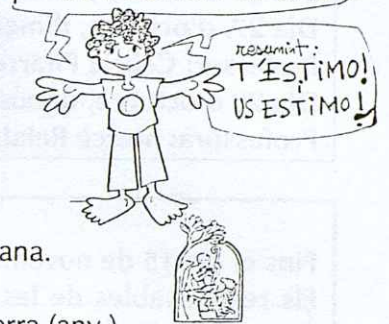 resumint:
T'ESTIMO!
i
US ESTIMO!
ana.
erra (any)